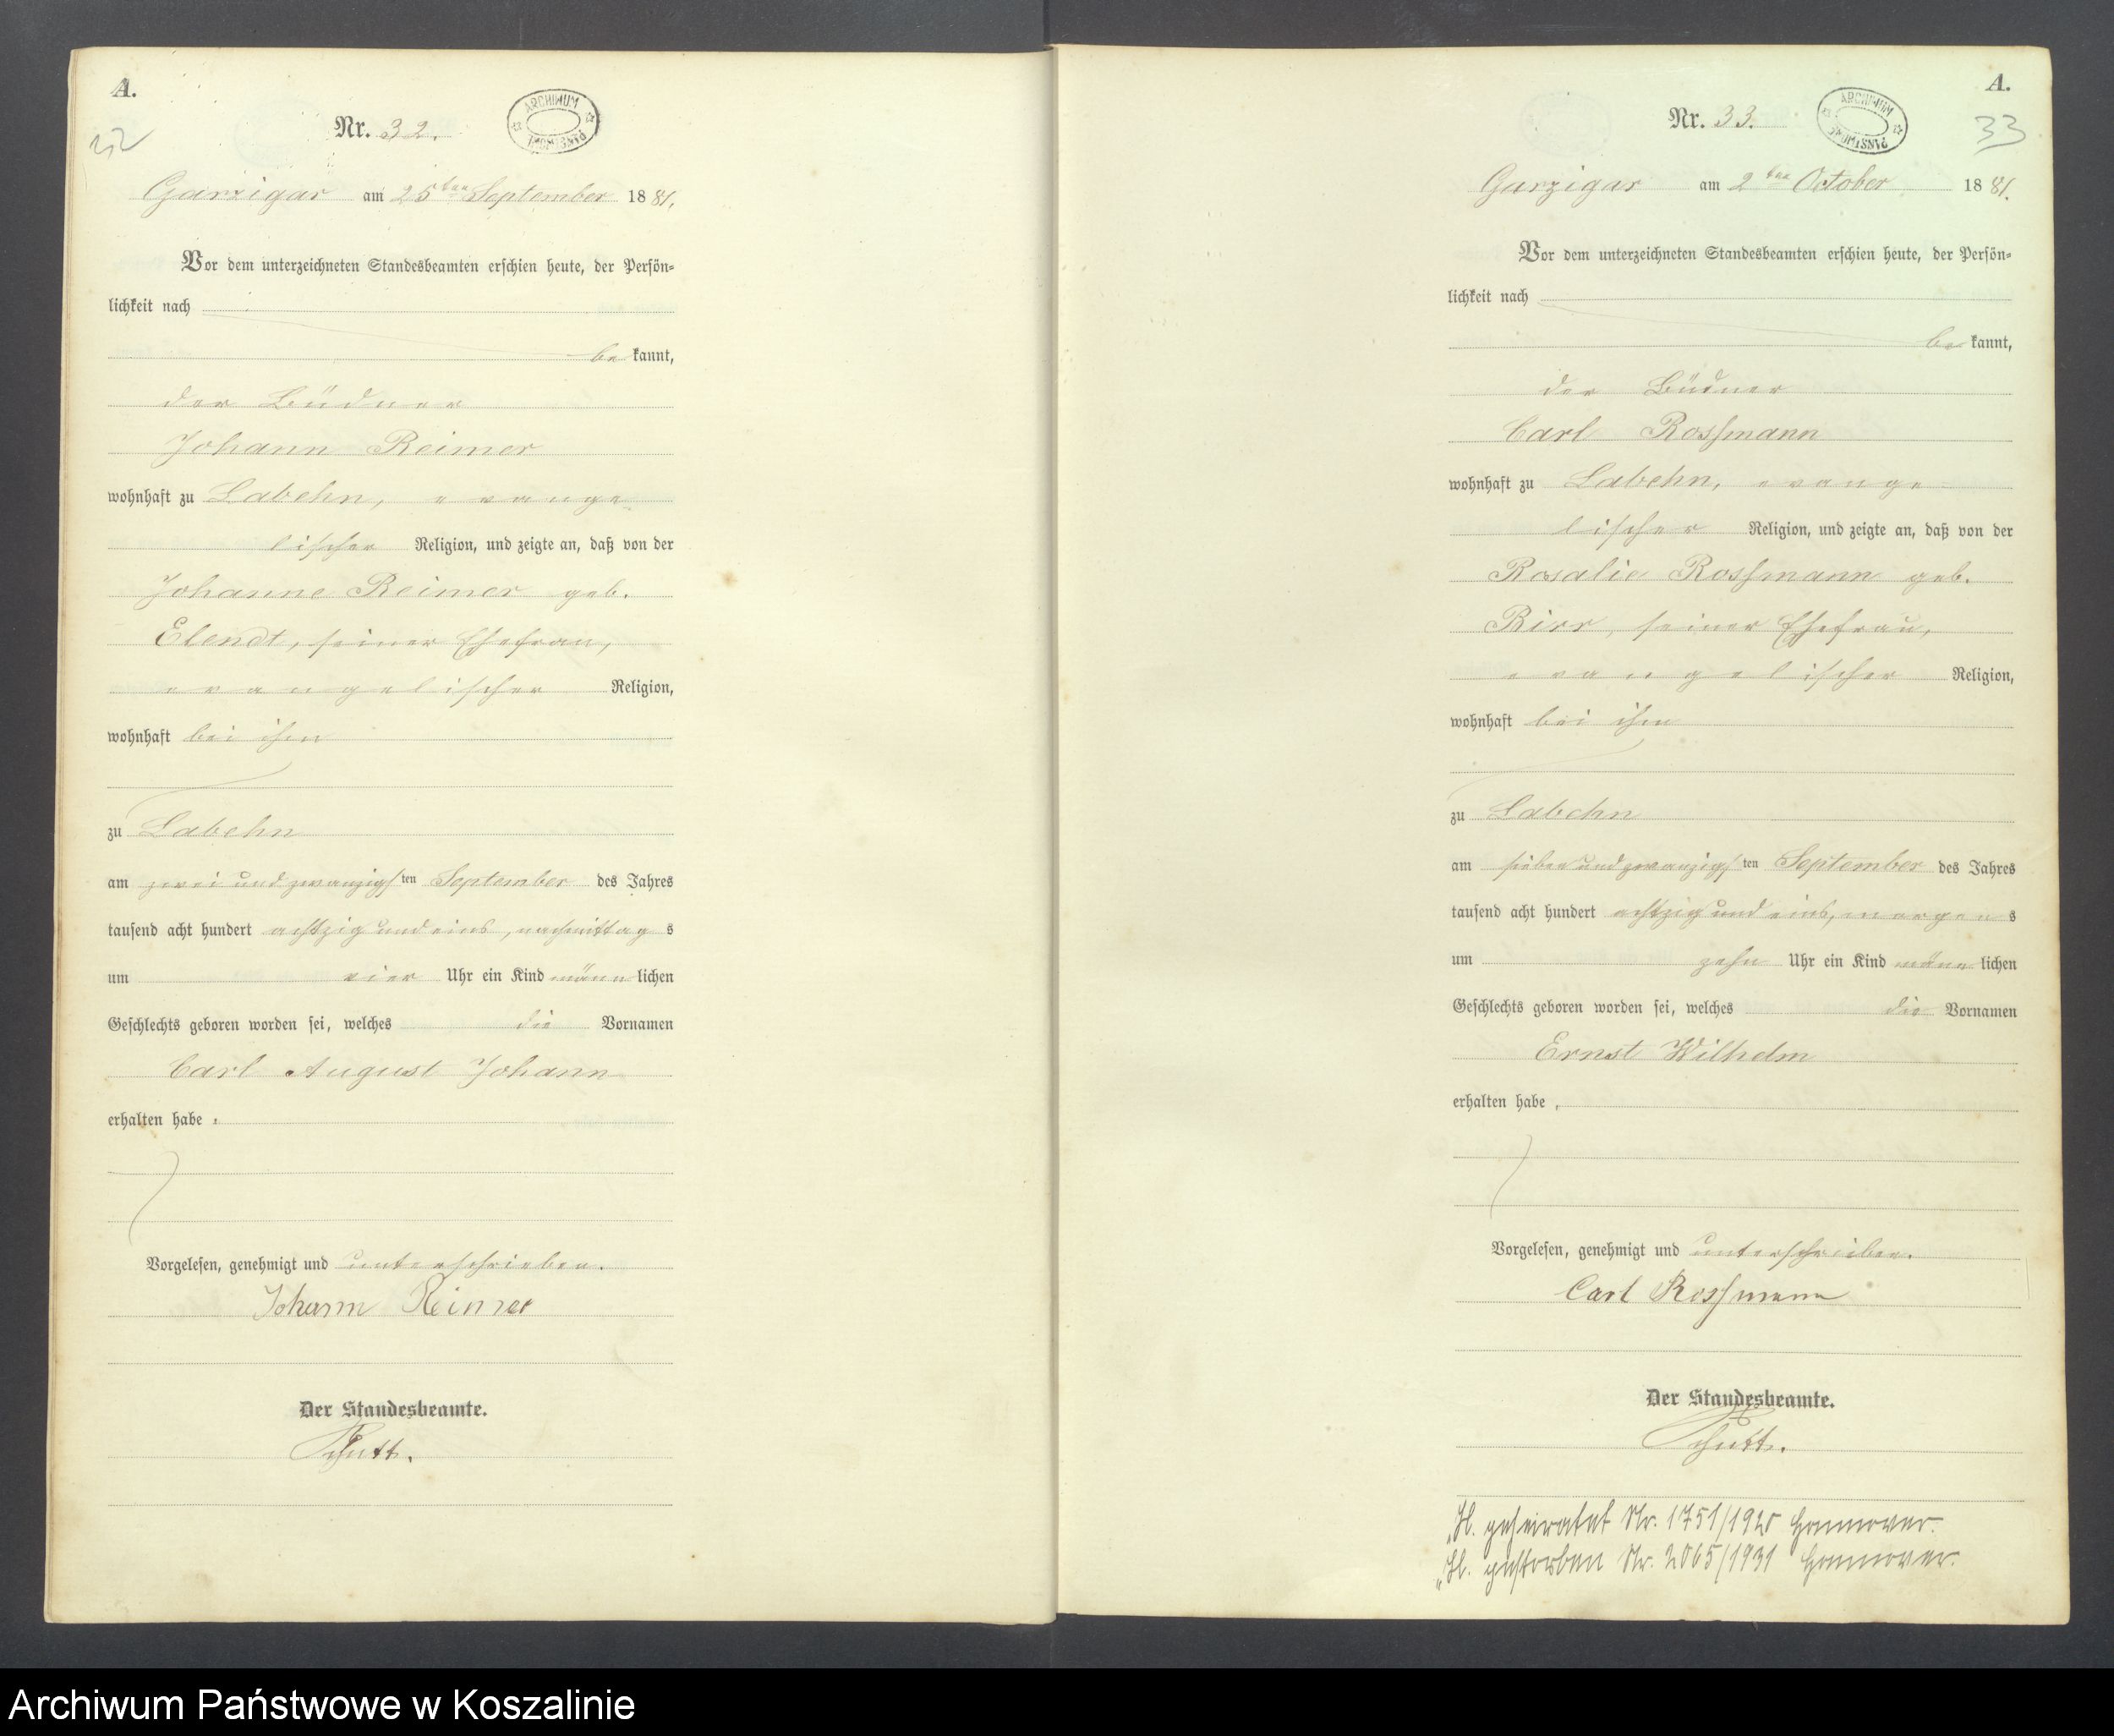 A.
32
Nr. 32.
ARCHIWUM PAŃSTWOWE
Garzigar am 25ten September 1881.
Vor dem unterzeichneten Standesbeamten erschien heute, der Persön=
lichkeit nach
be kannt,
der Büdner
Johann Reimer
wohnhaft zu Labehn, evange-
lischer Religion, und zeigte an, daß von der
Johanne Reimer geb.
Elendt, seiner Ehefrau,
evangelischer Religion,
wohnhaft bei ihm
zu Labehn
am zwei und zwanzigsten September des Jahres
tausend acht hundert achtzig und eins, nachmittags
um vier Uhr ein Kind männlichen
Geschlechts geboren worden sei, welches die Vornamen
Carl August Johann
erhalten habe.
Vorgelesen, genehmigt und unterschrieben.
Johann Reimer
Der Standesbeamte.
Schutt.
A.
33
Nr. 33.
ARCHIWUM PAŃSTWOWE
Garzigar am 2ten October 1881.
Vor dem unterzeichneten Standesbeamten erschien heute, der Persön=
lichkeit nach
be kannt,
der Büdner
Carl Rossmann
wohnhaft zu Labehn, evange-
lischer Religion, und zeigte an, daß von der
Rosalie Rossmann geb.
Birr, seiner Ehefrau,
evangelischer Religion,
wohnhaft bei ihm
zu Labehn
am sieben und zwanzigsten September des Jahres
tausend acht hundert achtzig und eins, morgens
um zehn Uhr ein Kind männlichen
Geschlechts geboren worden sei, welches die Vornamen
Ernst Wilhelm
erhalten habe.
Vorgelesen, genehmigt und unterschrieben.
Carl Rossmann
Der Standesbeamte.
Schutt.
geheiratet Nr. 1751/1920 Hannover.
gestorben Nr. 2065/1931 Hannover.
Archiwum Państwowe w Koszalinie